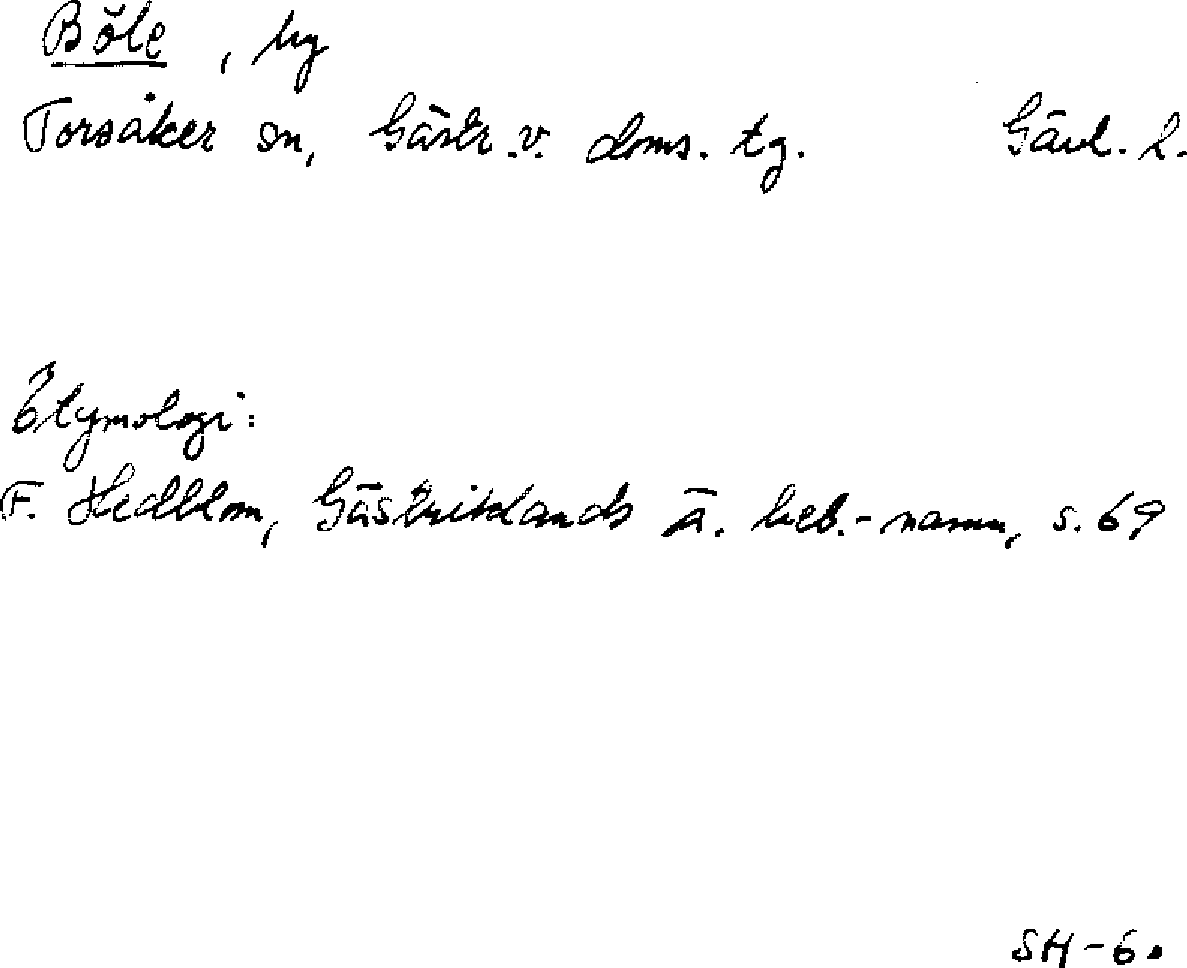 Böle, by
Torsåker sn, Gästr. v. doms. tg. Gävl. l.
Etymologi:
F. Hedblom, Gästriklands ä. beb.-namn, s. 69
SH-60